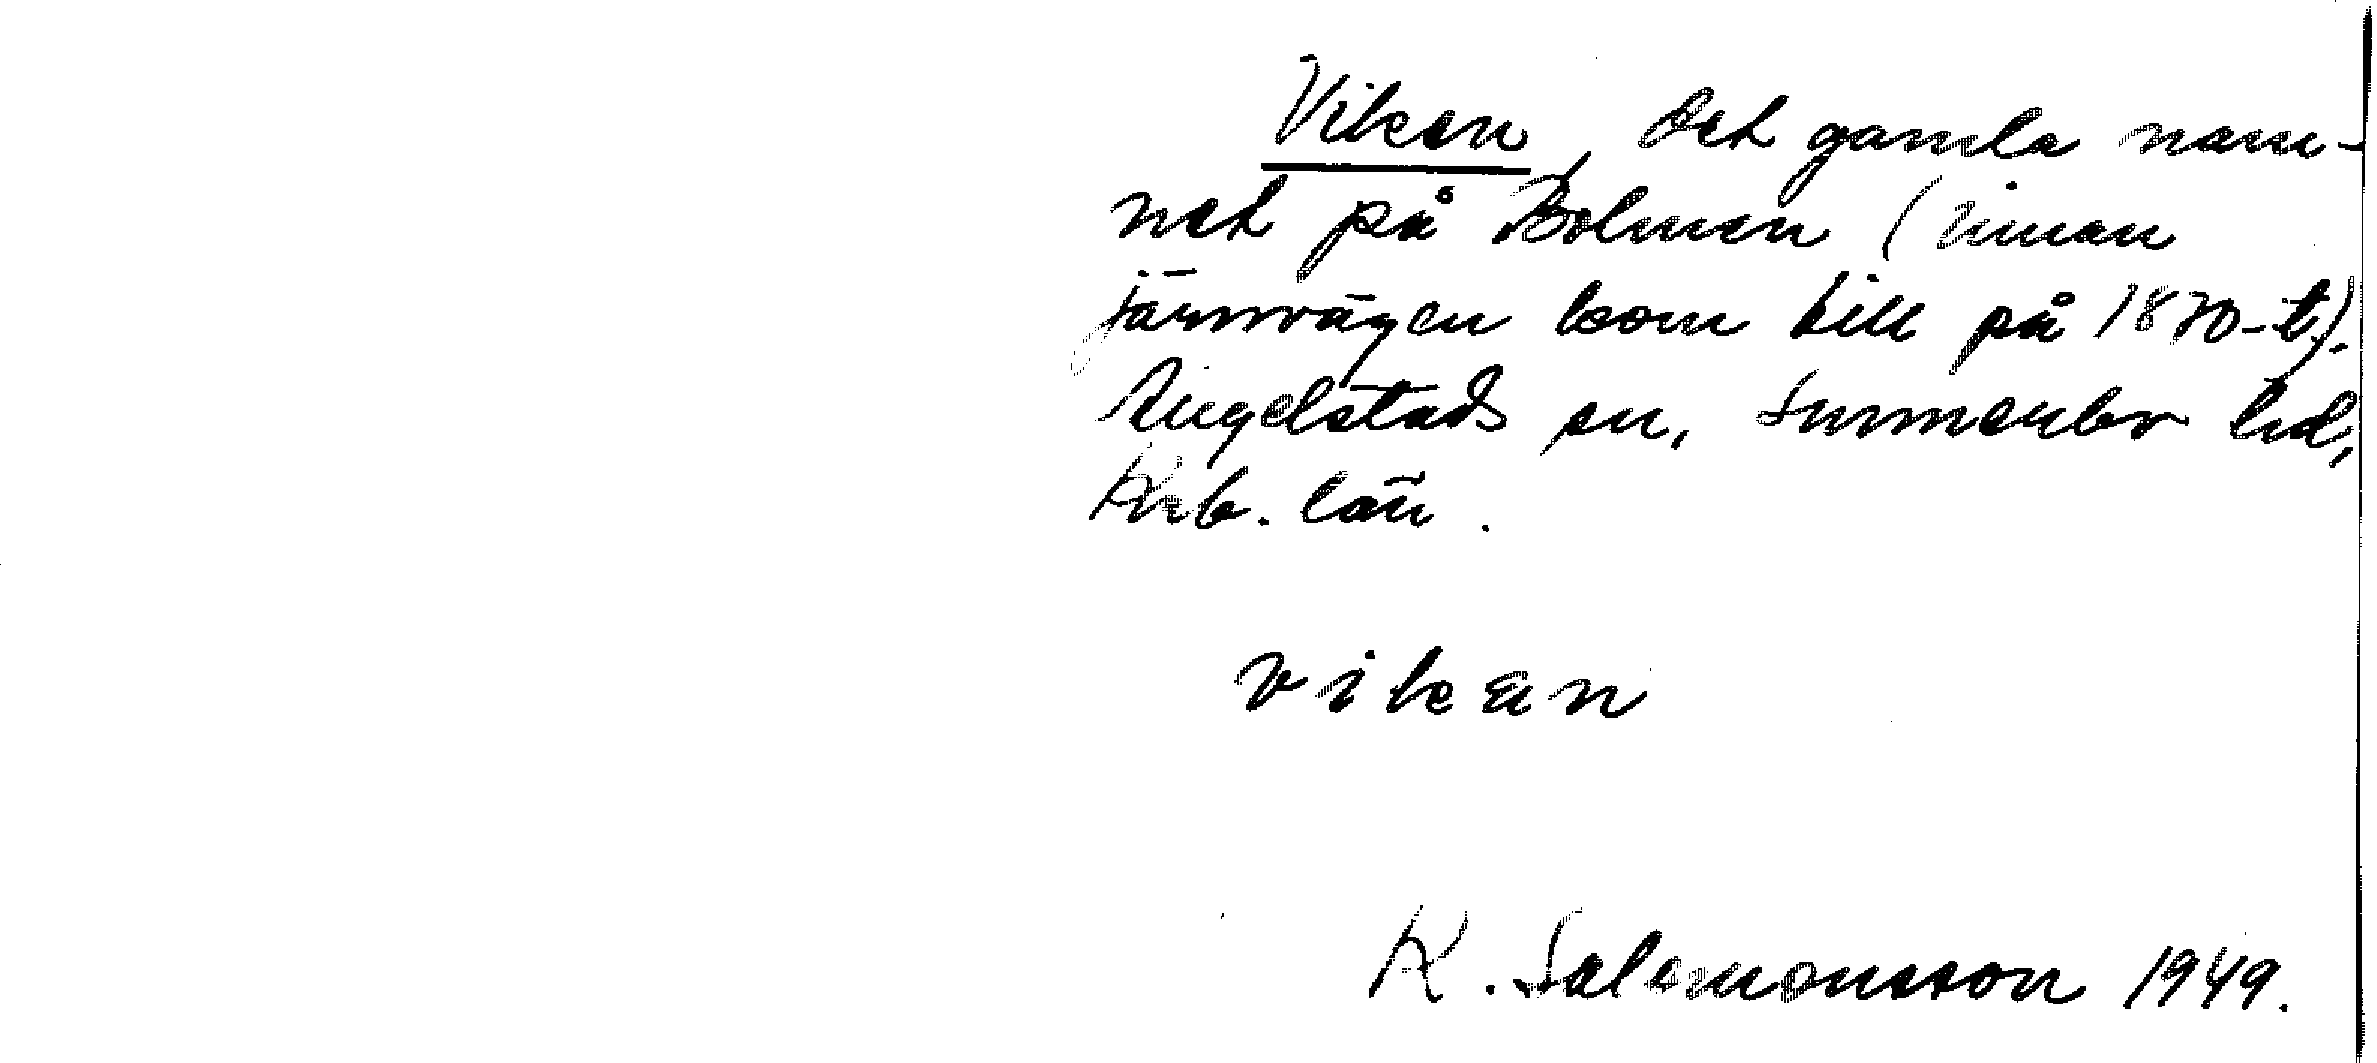 Viken, det gamla nam-
net på Bolmen (innan
järnvägen kom till på 1870-t).
Angelstads sn, Sunnerbo hd,
Krb. län.
vikän
K. Salomonsson 1949.